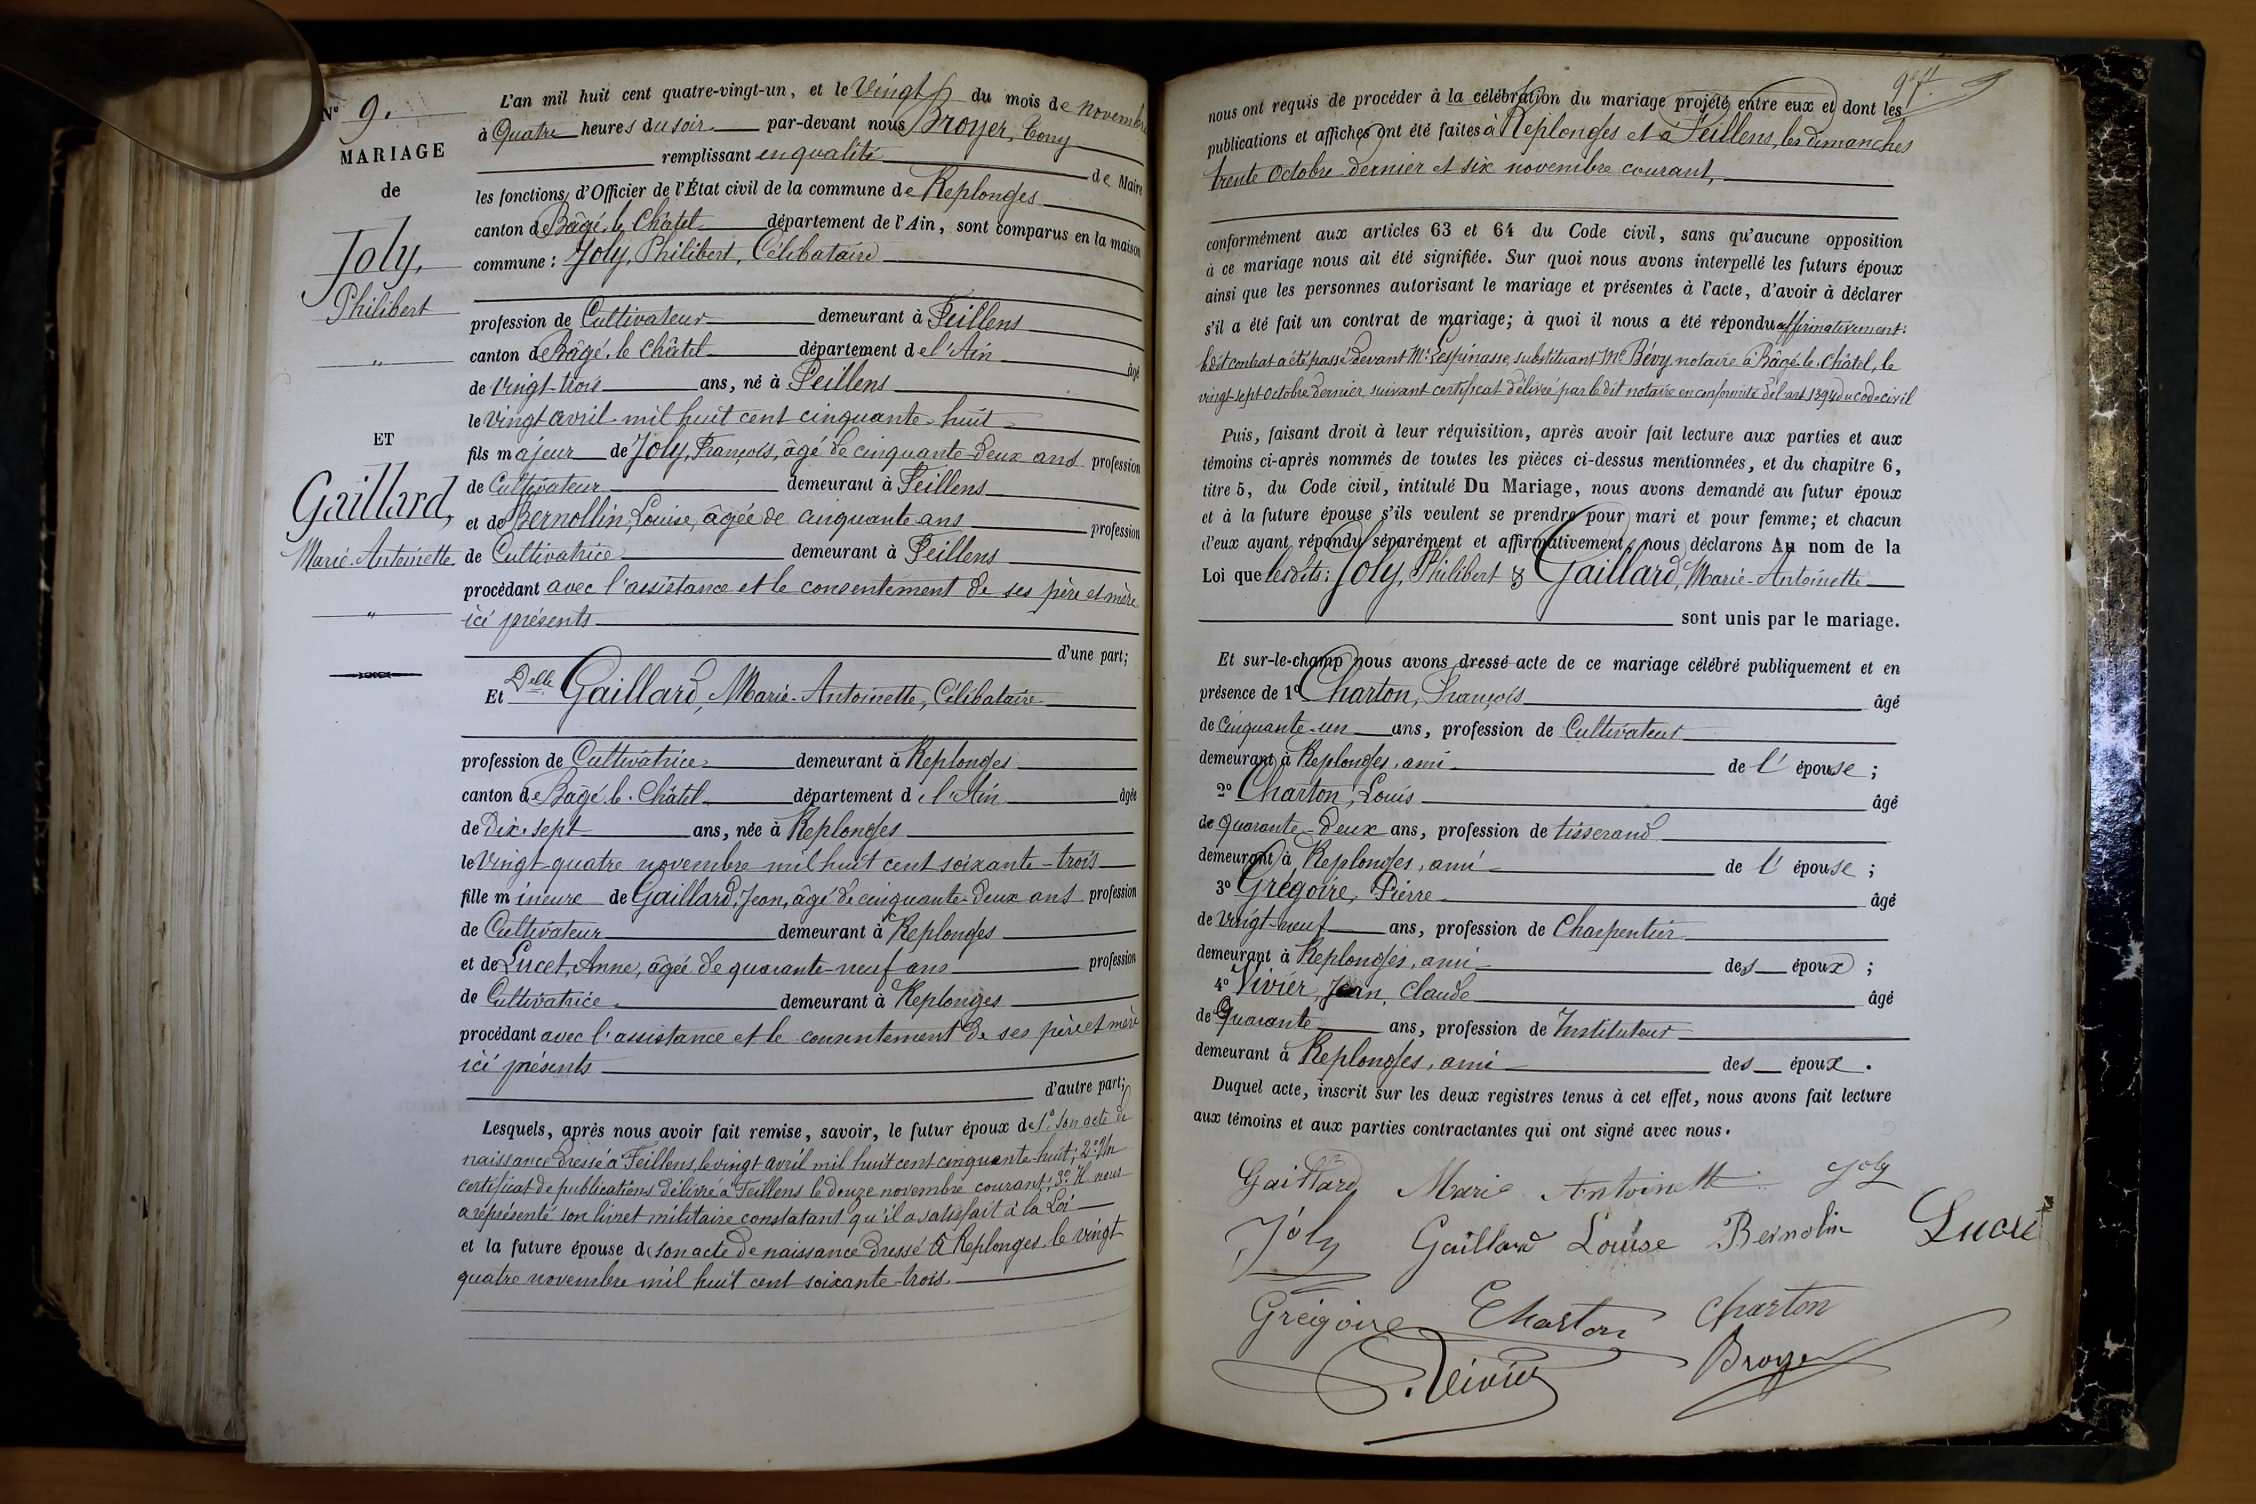 N° 9.
MARIAGE
de
Joly,
Philibert
"
ET
Gaillard,
Marie-Antoinette
"
L'an mil huit cent quatre-vingt-un, et le Vingt du mois de novembre
à Quatre heures du soir par-devant nous Broyer, Tony
remplissant en qualité de Maire
les fonctions d'Officier de l'État civil de la commune de Replonges
canton de Bâgé-le-Châtel département de l'Ain, sont comparus en la maison
commune : Joly, Philibert, Célibataire
profession de Cultivateur demeurant à Feillens
canton de Bâgé-le-Châtel département de l'Ain âgé
de vingt-trois ans, né à Feillens
le Vingt avril mil huit cent cinquante-huit
fils majeur de Joly, François, âgé de cinquante-deux ans profession
de Cultivateur demeurant à Feillens
et de Bernollin, Louise, âgée de cinquante ans profession
de Cultivatrice demeurant à Feillens
procédant avec l'assistance et le consentement de ses père et mère
ici présents
d'une part;
Et Delle Gaillard, Marie-Antoinette, Célibataire
profession de Cultivatrice demeurant à Replonges
canton de Bâgé-le-Châtel département de l'Ain âgée
de Dix-sept ans, née à Replonges
le Vingt-quatre novembre mil huit cent soixante-trois
fille mineure de Gaillard, Jean, âgé de cinquante-deux ans profession
de Cultivateur demeurant à Replonges
et de Lucet, Anne, âgée de quarante-neuf ans profession
de Cultivatrice demeurant à Replonges
procédant avec l'assistance et le consentement de ses père et mère
ici présents
d'autre part;
Lesquels, après nous avoir fait remise, savoir, le futur époux de 1° son acte de
naissance dressé à Feillens, le vingt avril mil huit cent cinquante-huit; 2° Un
certificat de publications délivré à Feillens le douze novembre courant; 3° Il nous
a représenté son livret militaire constatant qu'il a satisfait à la Loi
et la future épouse de son acte de naissance dressé à Replonges, le vingt
quatre novembre mil huit cent soixante-trois.
9
nous ont requis de procéder à la célébration du mariage projeté entre eux et dont les
publications et affiches ont été faites à Replonges et à Feillens, les dimanches
trente Octobre dernier et six novembre courant,
conformément aux articles 63 et 64 du Code civil, sans qu'aucune opposition
à ce mariage nous ait été signifiée. Sur quoi nous avons interpellé les futurs époux
ainsi que les personnes autorisant le mariage et présentes à l'acte, d'avoir à déclarer
s'il a été fait un contrat de mariage; à quoi il nous a été répondu affirmativement :
ledit contrat a été passé devant Me Lespinasse, substituant Me Bévy, notaire à Bâgé-le-Châtel, le
vingt-sept Octobre dernier, suivant certificat délivré par le dit notaire en conformité de l'art 1394 du code civil
Puis, faisant droit à leur réquisition, après avoir fait lecture aux parties et aux
témoins ci-après nommés de toutes les pièces ci-dessus mentionnées, et du chapitre 6,
titre 5, du Code civil, intitulé Du Mariage, nous avons demandé au futur époux
et à la future épouse s'ils veulent se prendre pour mari et pour femme; et chacun
d'eux ayant répondu séparément et affirmativement, nous déclarons Au nom de la
Loi que lesdits : Joly, Philibert & Gaillard, Marie-Antoinette
sont unis par le mariage.
Et sur-le-champ nous avons dressé acte de ce mariage célébré publiquement et en
présence de 1° Charton, François âgé
de Cinquante-un ans, profession de Cultivateur
demeurant à Replonges, ami de l'épouse ;
2° Charton, Louis âgé
de quarante-deux ans, profession de tisserand
demeurant à Replonges, ami de l'épouse ;
3° Grégoire, Pierre âgé
de vingt-neuf ans, profession de Charpentier
demeurant à Replonges, ami des époux ;
4° Vivier, Jean, Claude âgé
de Quarante ans, profession de Instituteur
demeurant à Replonges, ami des époux .
Duquel acte, inscrit sur les deux registres tenus à cet effet, nous avons fait lecture
aux témoins et aux parties contractantes qui ont signé avec nous.
Gaillard Marie Antoinette Joly
Joly Gaillard Louise Bernolin
Grégoire Charton Charton
Vivier Broyer